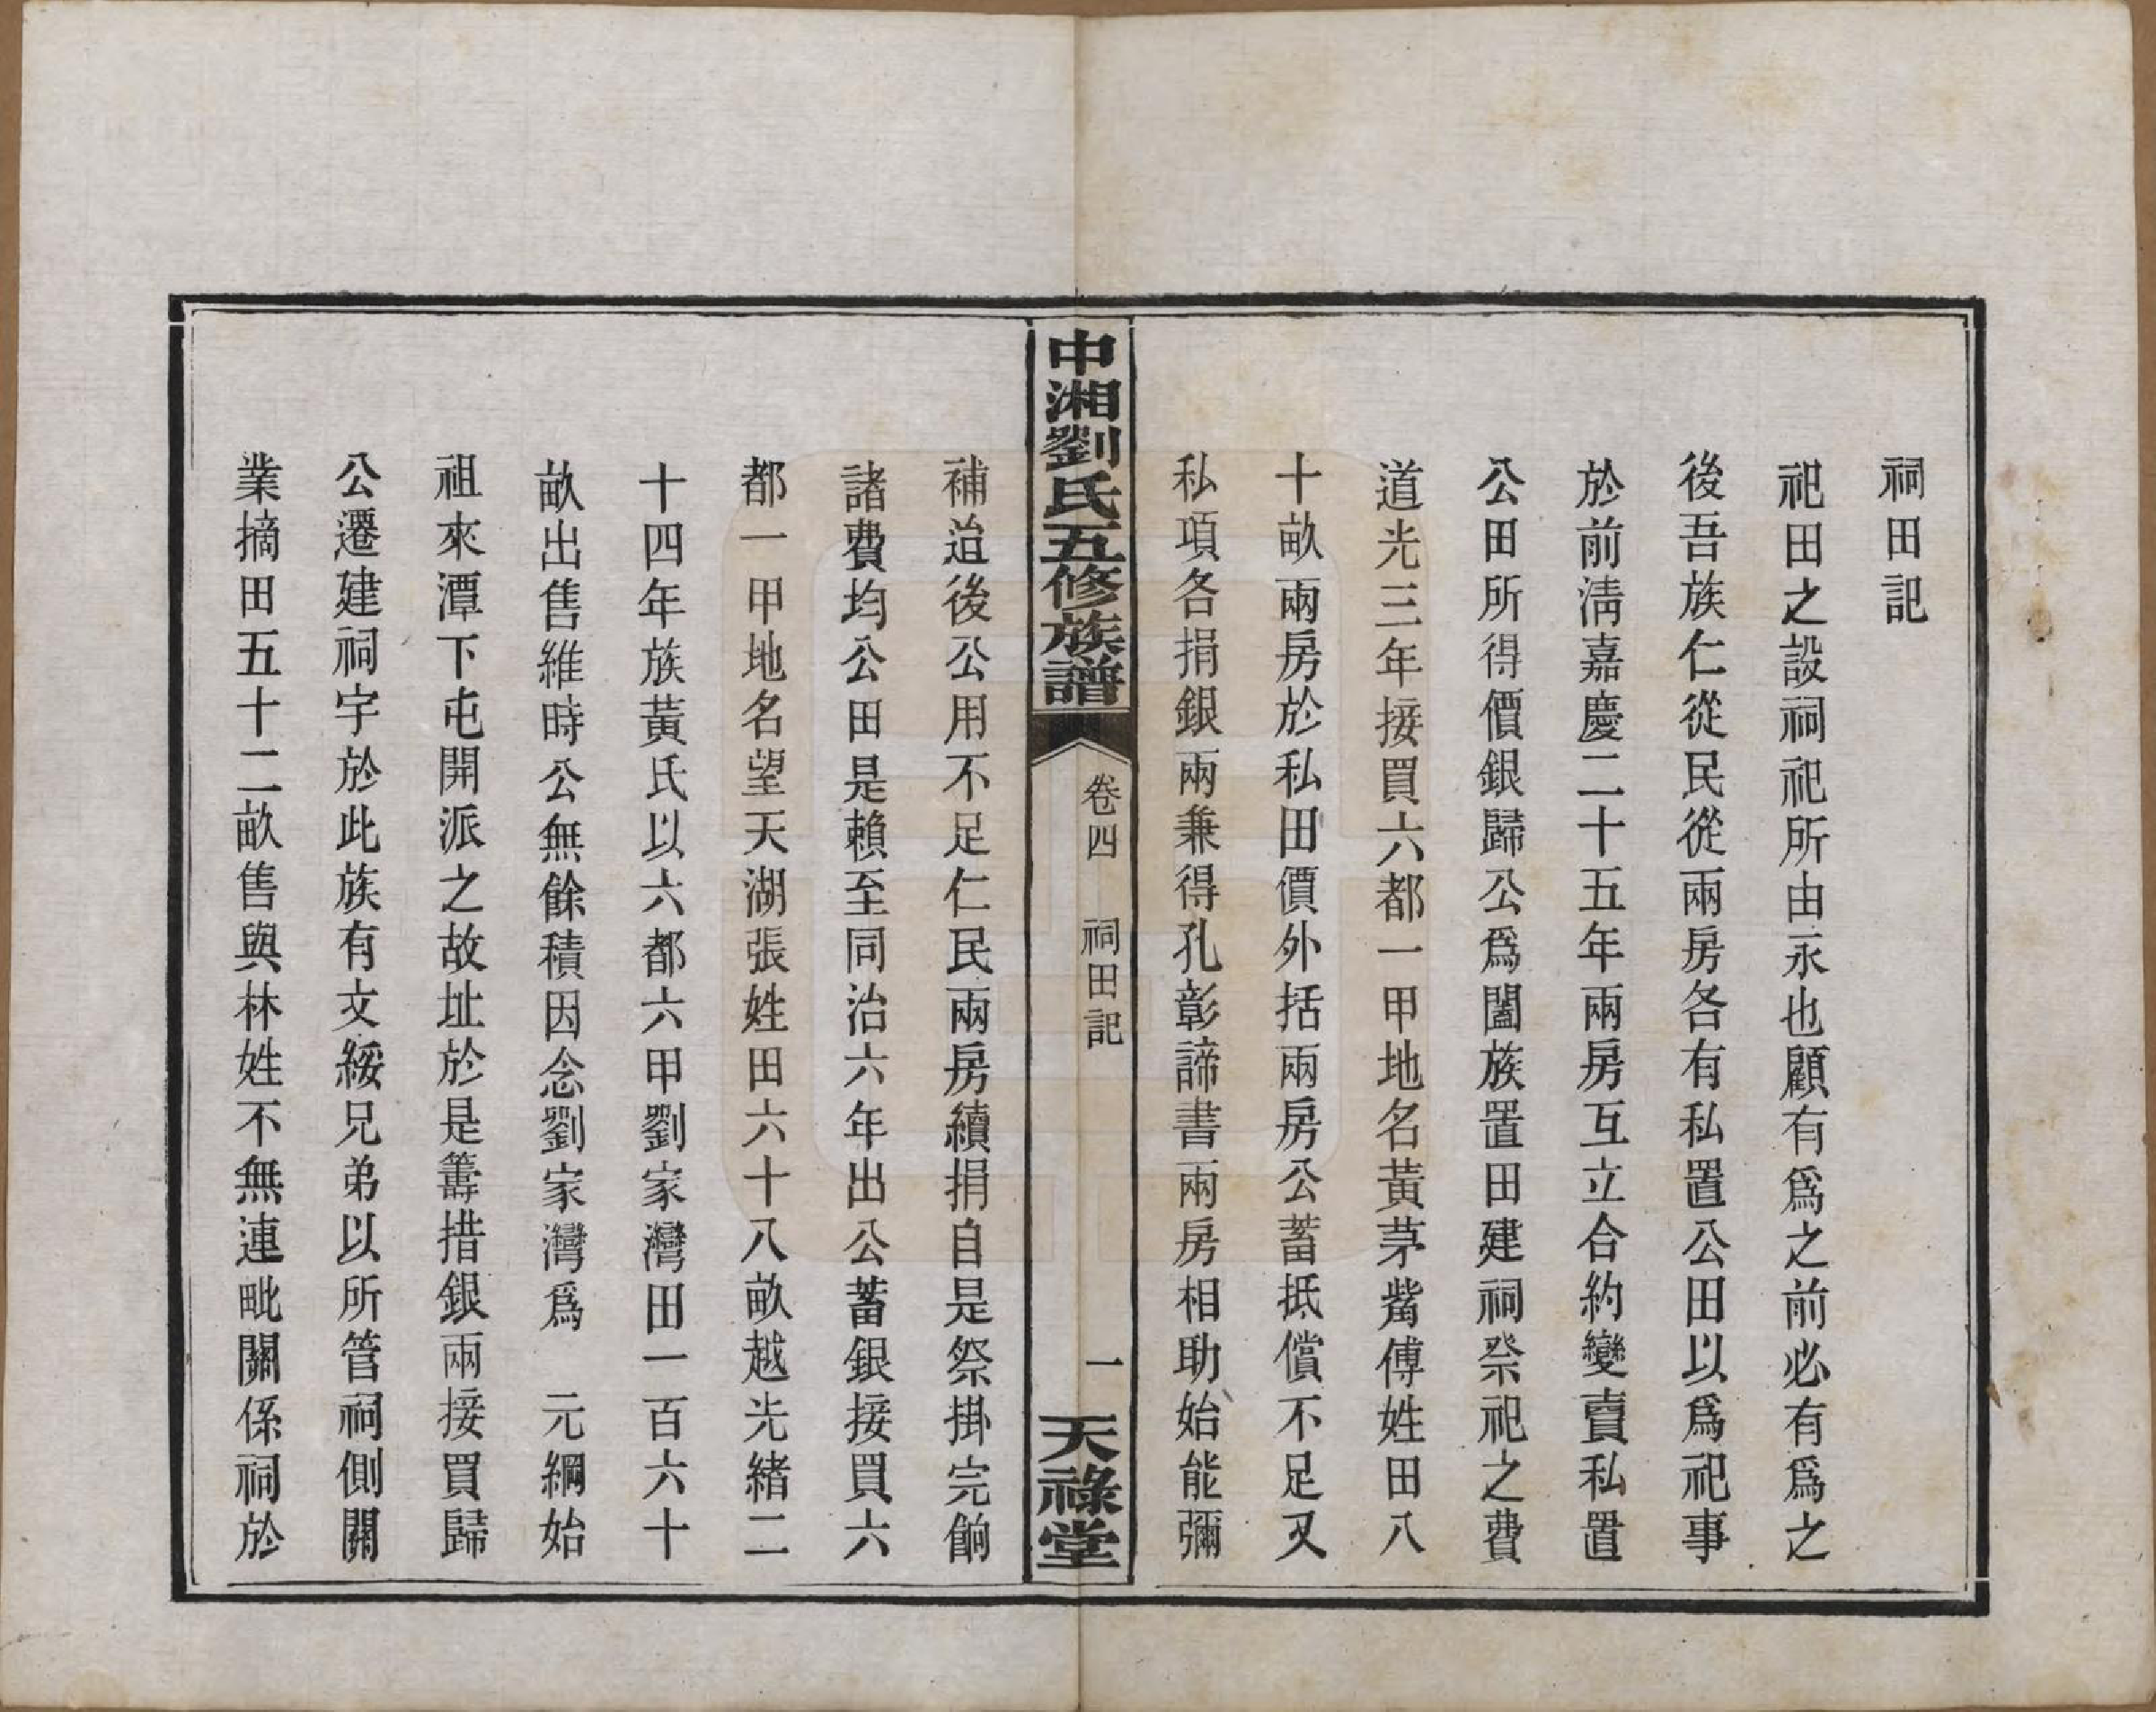 祠田記
祀田之設祠祀所由永也顧有爲之前必有爲之
後吾族仁從民從兩房各有私置公田以爲祀事
於前淸嘉慶二十五年兩房互立合約變賣私置
公田所得價銀歸公爲闔族置田建祠祭祀之費
道光三年接買六都一甲地名黃茅觜傅姓田八
十畝兩房於私田價外括兩房公蓄抵償不足又
私項各捐銀兩兼得孔彰諦書兩房相助始能彌
中湘劉氏五修族譜
卷四 祠田記
一
天祿堂
補迨後公用不足仁民兩房續捐自是祭掛完餉
諸費均公田是賴至同治六年出公蓄銀接買六
都一甲地名望天湖張姓田六十八畝越光緒二
十四年族黃氏以六都六甲劉家灣田一百六十
畝出售維時公無餘積因念劉家灣爲 元綱始
祖來潭下屯開派之故址於是籌措銀兩接買歸
公遷建祠宇於此族有文綏兄弟以所管祠側關
業摘田五十二畝售與林姓不無連毗關係祠於